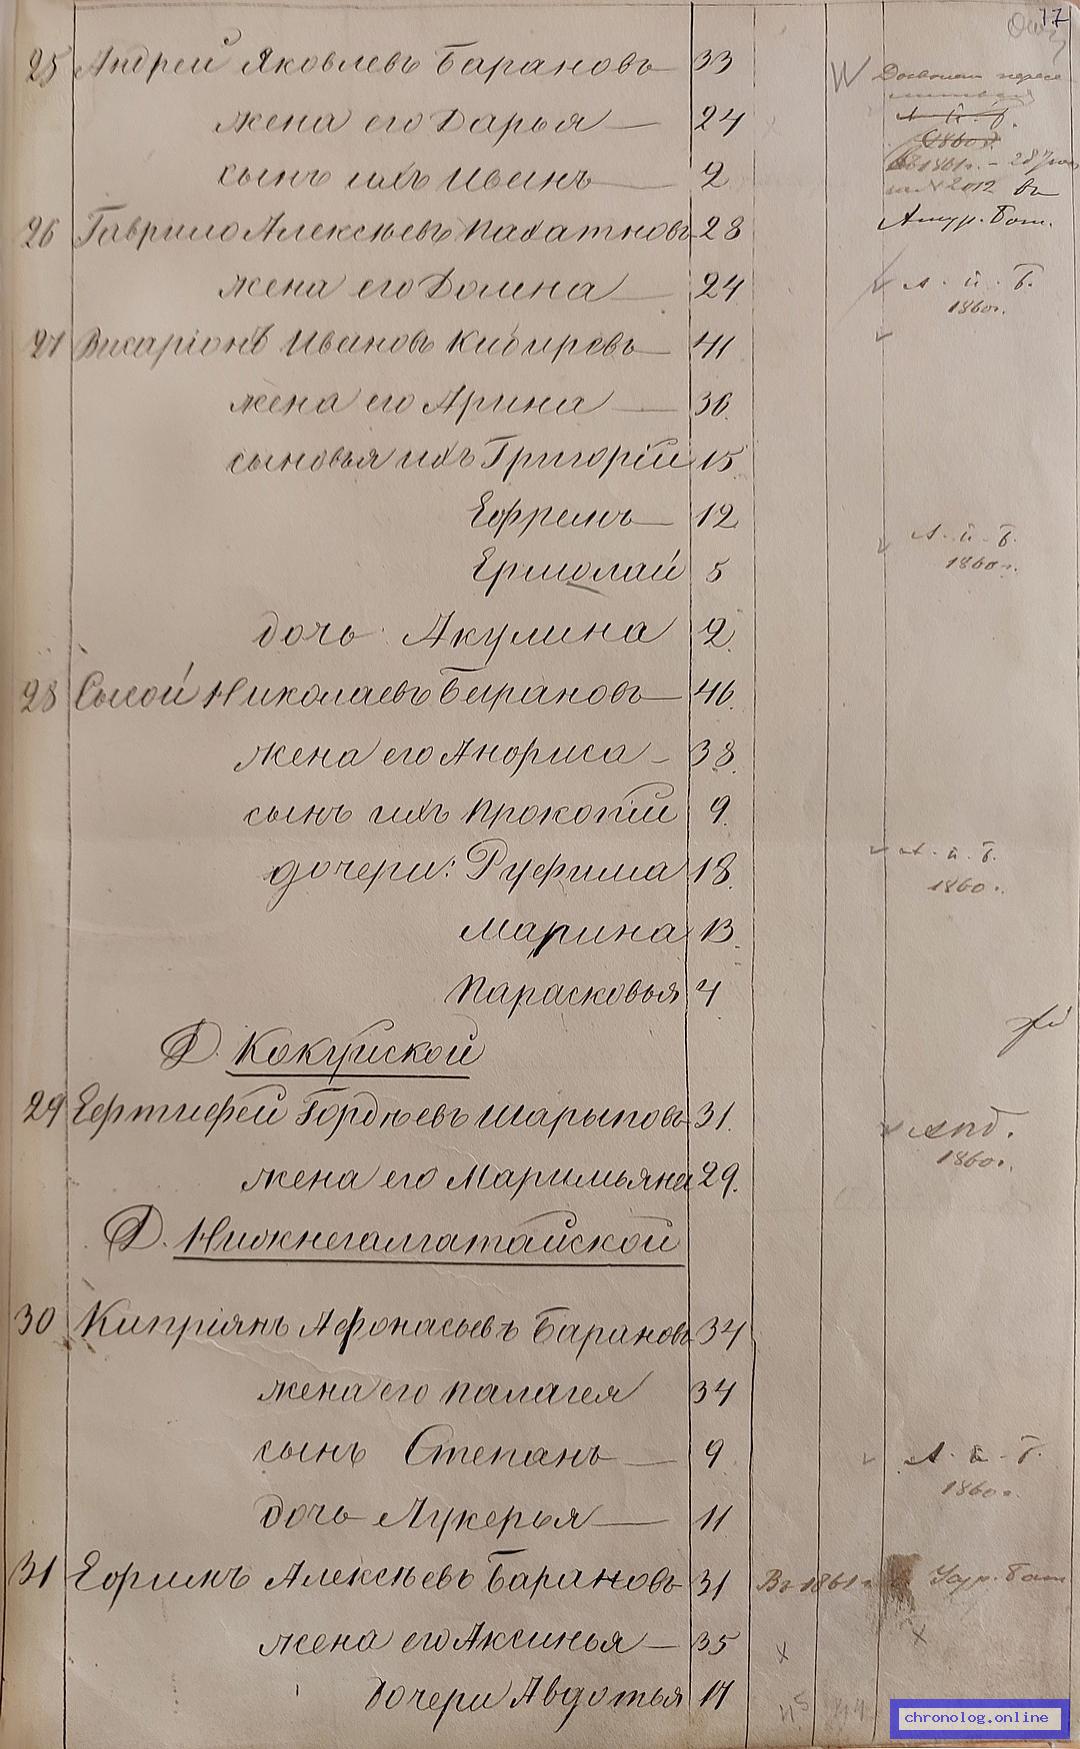 17
25 Андрей Яковлевъ Барановъ 33
жена его Дарья 24
сынъ ихъ Иванъ 2
Дозволено пересе
литься
А. й. б.
1860г.
въ 1861г. - 28 Июн
2012 въ
Амур. бат.
26 Гаврило Алексѣевъ Пахатновъ 28
жена его Домна 24
А. й. Б.
1860г.
27 Висаріонъ Ивановъ Кибиревъ 41
жена его Арина 36.
сыновья ихъ Григорій 15
Ефремъ 12
А. й. Б.
1860г.
Ермолай 5
дочь Акулина 2
28 Сысой Николаевъ Барановъ 46.
жена его Анфиса 38.
сынъ ихъ Прокопій 9.
дочери: Руфима 18.
А. й. Б.
1860г.
Марина 13.
Парасковья 4
Д. Кокуйской
29 Евтифей Гордѣевъ Шарыповъ 31.
жена его Маримьяна 29.
1860г.
Д. Нижнегалгатайской
30 Кипріянъ Афонасьевъ Барановъ 34
жена его Палагея 34
сынъ Степанъ 9
А. й. Б.
1860г.
дочь Лукерья 11
31 Ефримъ Алексѣевъ Барановъ 31 Въ 1861г
жена его Аксинья 35 х х
дочери Авдотья 17
chronolog.online